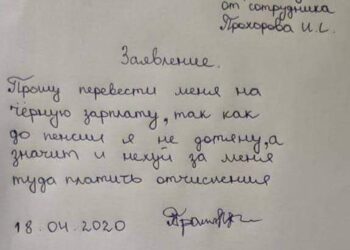 от сотрудника
Прохорова И.С.
Заявление.
Прошу перевести меня на
чёрную зарплату, так как
до пенсии я не дотяну, а
значит и нехуй за меня
туда платить отчисления
18.04.2020